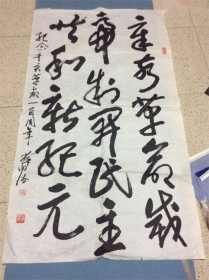 辛亥革命
帝制開民主
共和新紀元
纪念辛亥革命一百周年